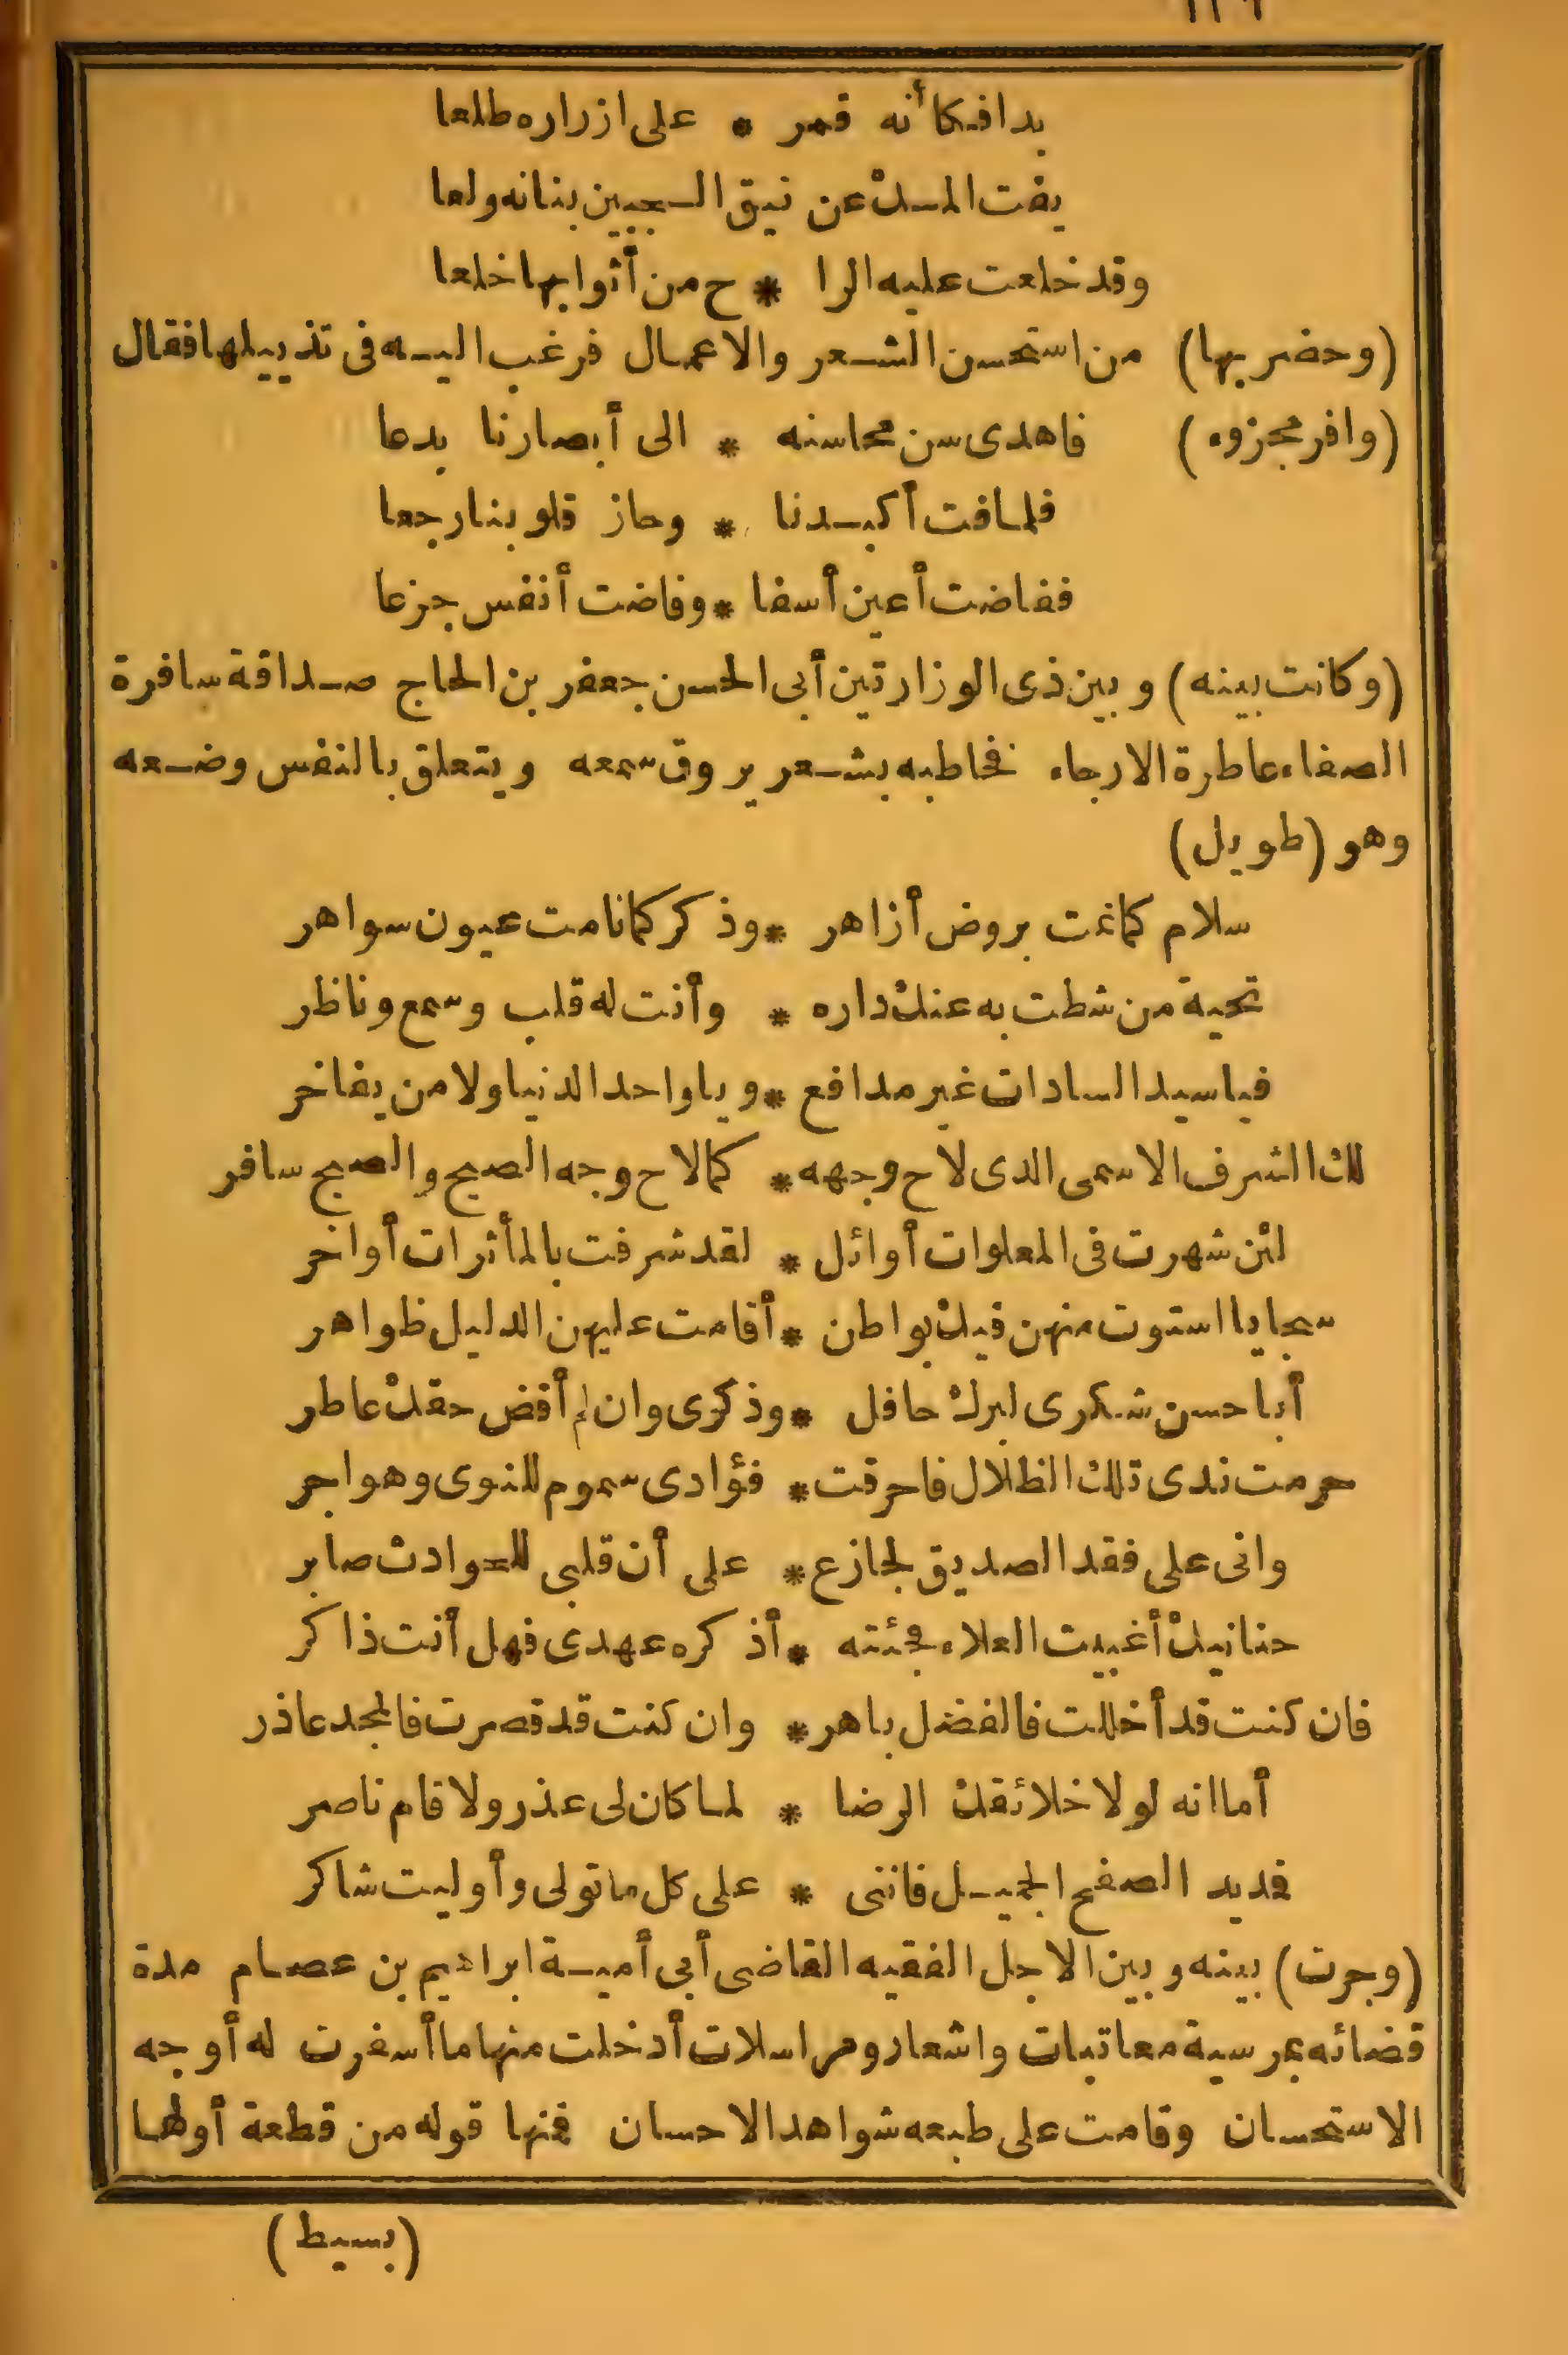 بدا فكأنه قمر * على ازراره طلعا
يفت المسك عن نيق السجبين بنانه ولعا
وقد خلعت عليه الرا * ح من أثوابها خلعا
(وحضر بها) من استحسن الشعر والاعمال فرغب اليه فى تذييلها فقال
(وافر مجزوء) فاهدى سن محاسنه * الى أبصارنا بدعا
فلما فت أكبدنا * وحاز قلوبنا رجعا
ففاضت أعين أسفا * وفاضت أنفس جزعا
(وكانت بينه) وبين ذى الوزارتين أبى الحسن جعفر بن الحاج صداقة سافرة
الصفاء عاطرة الارجاء فخاطبه بشعر يروق سمعه ويتعلق بالنفس وضعه
وهو (طويل)
سلام كما نمت بروض أزاهر * وذكر كما نامت عيون سواهر
تحية من شطت به عنك داره * وأنت له قلب وسمع وناظر
فيا سيد السادات غير مدافع * ويا واحد الدنيا ولا من يفاخر
لك الشرف الاسمى الذى لاح وجهه * كما لاح وجه الصبح والصبح سافر
لئن شهرت فى المعلوات أوائل * لقد شرفت بالمأثرات أواخر
سجايا استوت منهن فيك بواطن * أقامت عليهن الدليل ظواهر
أبا حسن شكرى لبرك حافل * وذكرى وان لم أقض حقك عاطر
حرمت ندى تلك الظلال فاحرقت * فؤادى سموم للنوى وهواجر
وانى على فقد الصديق لجازع * على أن قلبى للحوادث صابر
حنانيك أغببت العلاء فجئته * أذكره عهدى فهل أنت ذاكر
فان كنت قد أخللت فالفضل باهر * وان كنت قد قصرت فالمجد عاذر
أما انه لولا خلائقك الرضا * لما كان لى عذر ولا قام ناصر
فديد الصفح الجميل فاننى * على كل ما تولى وأوليت شاكر
(وجرت) بينه وبين الاجل الفقيه القاضى أبى أمية ابراهيم بن عصام مدة
قضائه بمرسية معاتبات واشعار ومراسلات أدخلت منها ما أسفرت له أوجه
الاستحسان وقامت على طبعه شواهد الاحسان فمنها قوله من قطعة أولها
(بسيط)